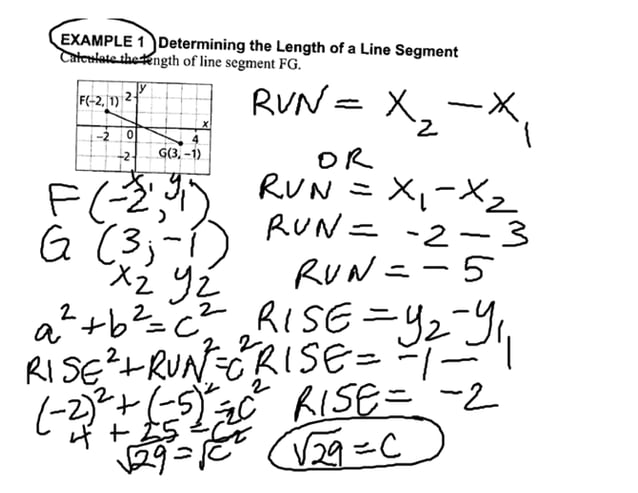 EXAMPLE 1 Determining the Length of a Line Segment
Calculate the length of line segment FG.
y
F(-2, 1) 2
x
-2 0 4
-2 G(3, -1)
RUN = x₂ - x₁
OR
RUN = x₁ - x₂
RUN = -2 - 3
RUN = -5
x₁ y₁
F(-2, 1)
G (3, -1)
x₂ y₂
a² + b² = c²
RISE² + RUN² = c²
(-2)² + (-5)² = c²
4 + 25 = c²
√29 = √c²
RISE = y₂ - y₁
RISE = -1 - 1
RISE = -2
√29 = C